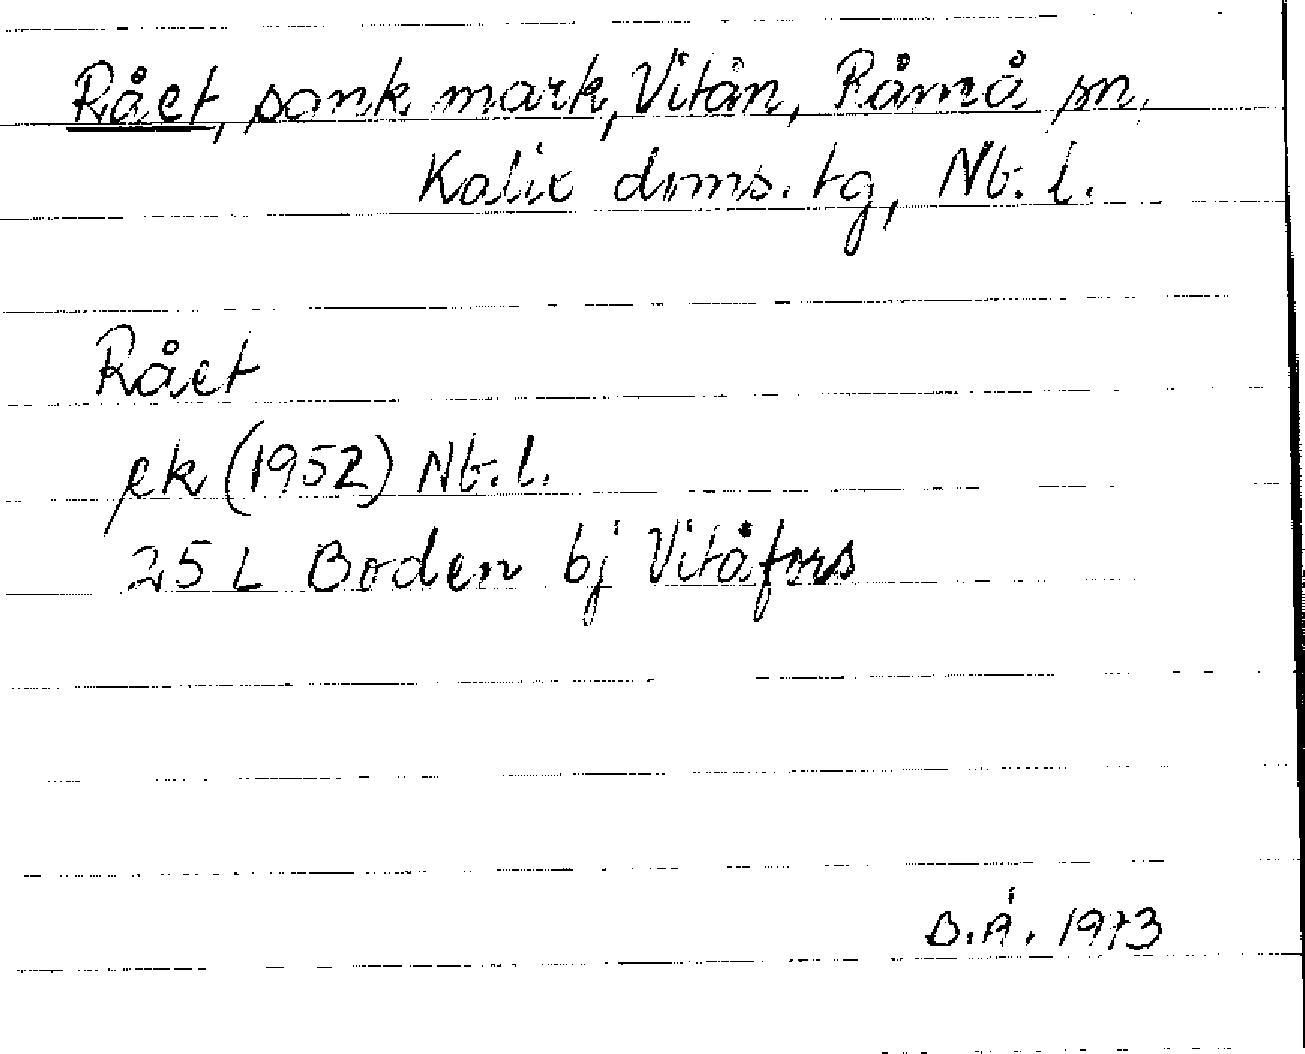 Rået, sank mark, Vitån, Råneå sn,
Kalix doms. tg, Nb. l.
Rået
ek (1952) Nb. l.
25 L Boden bj Vitåfors
B.Å. 1973